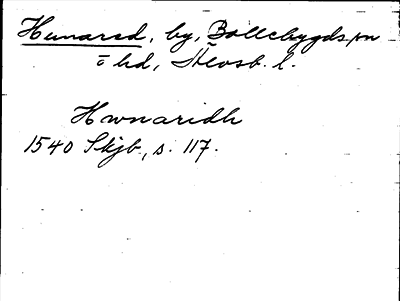 Hunared, by, Bollebygds sn
o hd, Älvsb. l.
Hwnaridh
1540 Skjb, s. 117.